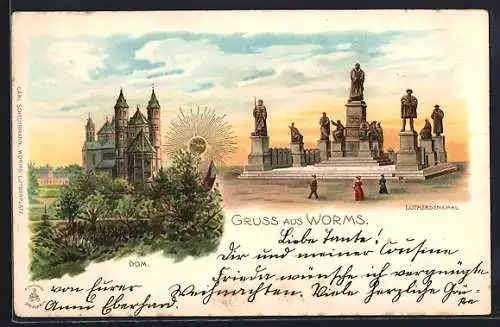 CARL SCHUERMANN, WORMS, LUTHERPLATZ.
LUTHERDENKMAL
GRUSS AUS WORMS.
DOM.
Liebe Tante!
Dir und meiner Cousine
Frieda wünsche ich vergnügte
Weihnachten. Viele herzliche Grüsse
von Eurer
Anni Eberhard.